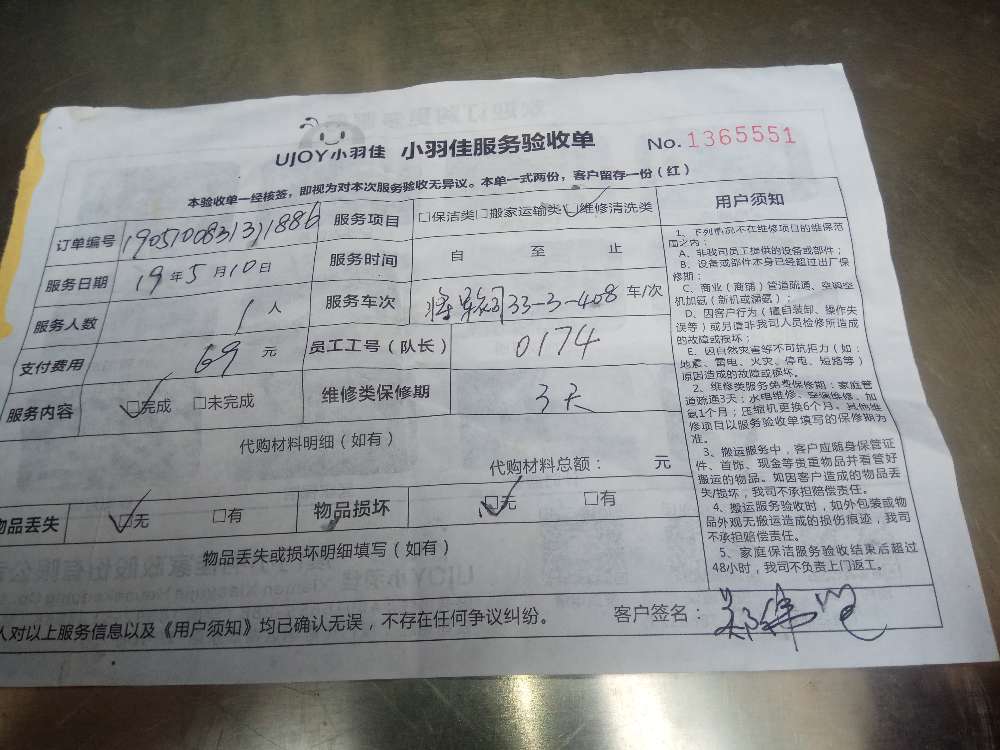 UJOY小羽佳 小羽佳服务验收单 No.1365551
本验收单一经核签，即视为对本次服务验收无异议。本单一式两份，客户留存一份（红）
订单编号 1905100831311886 服务项目 □保洁类□搬家运输类☑维修清洗类
服务日期 19年5月10日 服务时间 自 至 止
服务人数 1人 服务车次 33-3-408 车/次
支付费用 69元 员工工号（队长） 0174
服务内容 ☑完成 □未完成 维修类保修期 3天
代购材料明细（如有）
代购材料总额： 元
物品丢失 ☑无 □有 物品损坏 ☑无 □有
物品丢失或损坏明细填写（如有）
人对以上服务信息以及《用户须知》均已确认无误，不存在任何争议纠纷。 客户签名：
用户须知
1、下列情况不在维修项目的维保范
围之内：
A、非我司员工提供的设备或部件；
B、设备或部件本身已经超过出厂保
修期；
C、商业（商铺）管道疏通、空调空
机加氨（新机或漏氨）；
D、因客户行为（擅自装卸、操作失
误等）或另请非我司人员检修所造成
的故障或损坏；
E、因自然灾害等不可抗拒力（如：
地震、雷电、火灾、停电、短路等）
原因造成的故障或损坏。
2、维修类服务免费保修期：家庭管
道疏通3天；水电维修、空调维修、加
氨1个月；压缩机更换6个月。其他维
修项目以服务验收单填写的保修期为
准。
3、搬运服务中，客户应随身保管证
件、首饰、现金等贵重物品并看管好
搬运的物品。如因客户造成的物品丢
失/损坏，我司不承担赔偿责任。
4、搬运服务验收时，如外包装或物
品外观无搬运造成的损伤痕迹，我司
不承担赔偿责任。
5、家庭保洁服务验收结束后超过
48小时，我司不负责上门返工。